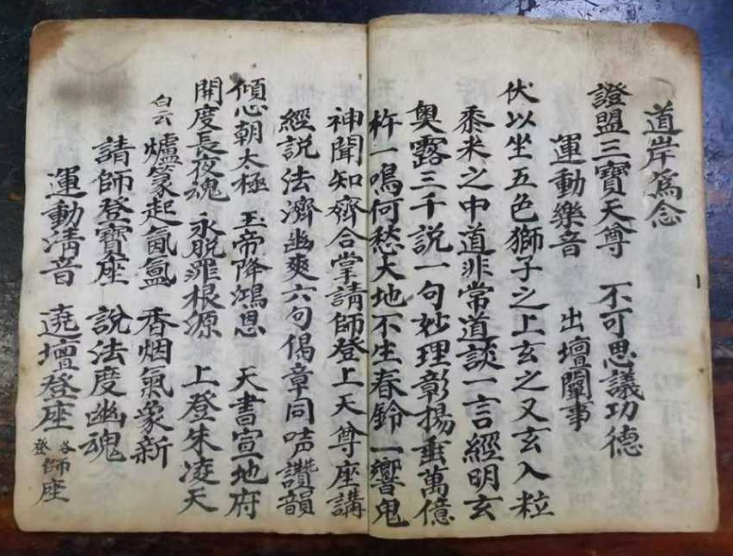 道岸爲念
證盟三寶天尊　不可思議功德
運動樂音　出壇闡事
伏以坐五色獅子之上玄之又玄入粒
黍米之中道非常道談一言經明玄
奧露三千説一句妙理彰揚垂萬億
杵一鳴何愁天地不生春鈴一響鬼
神聞知齊合掌請師登上天尊座講
經説法濟幽爽六句偈章同声讚韻
傾心朝太極　玉帝降鴻恩　天書宣地府
開度長夜魂　永脱罪根源　上登朱凌天
白云　爐篆起氤氳　香烟氣象新
請師登寶座　説法度幽魂
運動清音　遶壇登座　各登師座